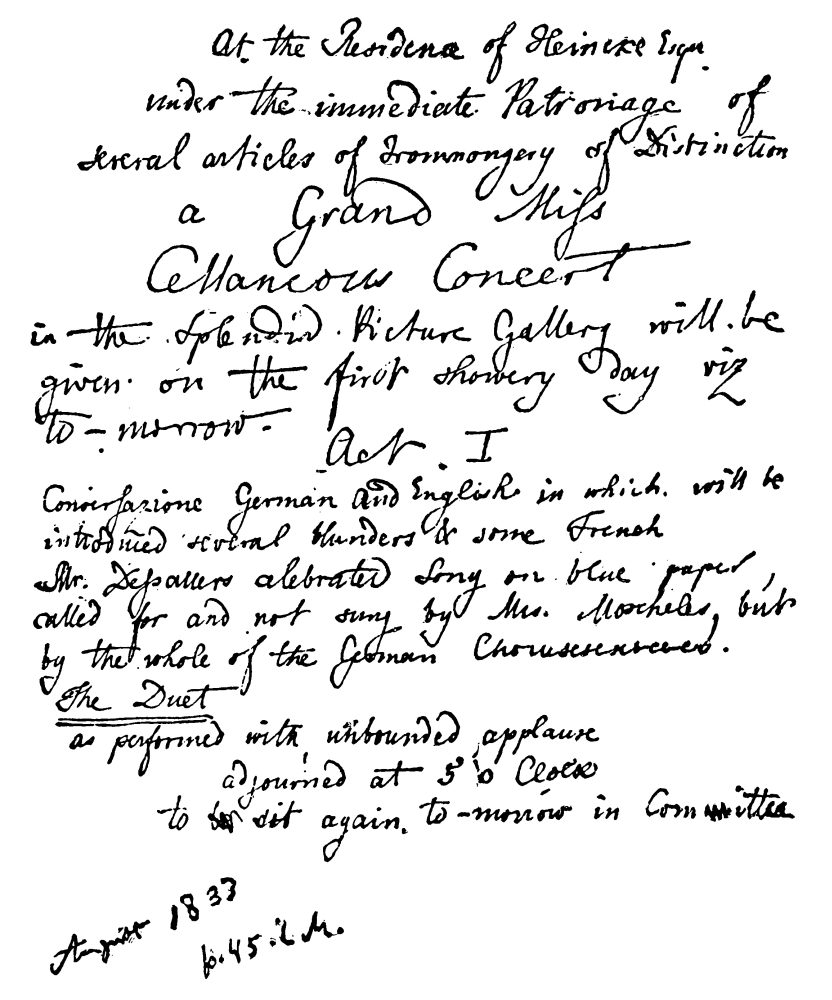 At the Residence of Heincke Esqu.
under the immediate Patronage of
several articles of Iromnongery of Distinction
a Grand Miss
Cellaneous Concert
in the Splendid Picture Gallery will be
given on the first showery day viz
to-morrow.
Act. I
Conversazione German and English in which will be
introduced several blunders & some French
Mr. Dessauers celebrated Song on blue paper,
called for and not sung by Mrs. Moscheles, but
by the whole of the German
The Duet
as performed with unbounded applause
adjourned at 5 o Clock
to sit again to-morrow in Committee
August 1833